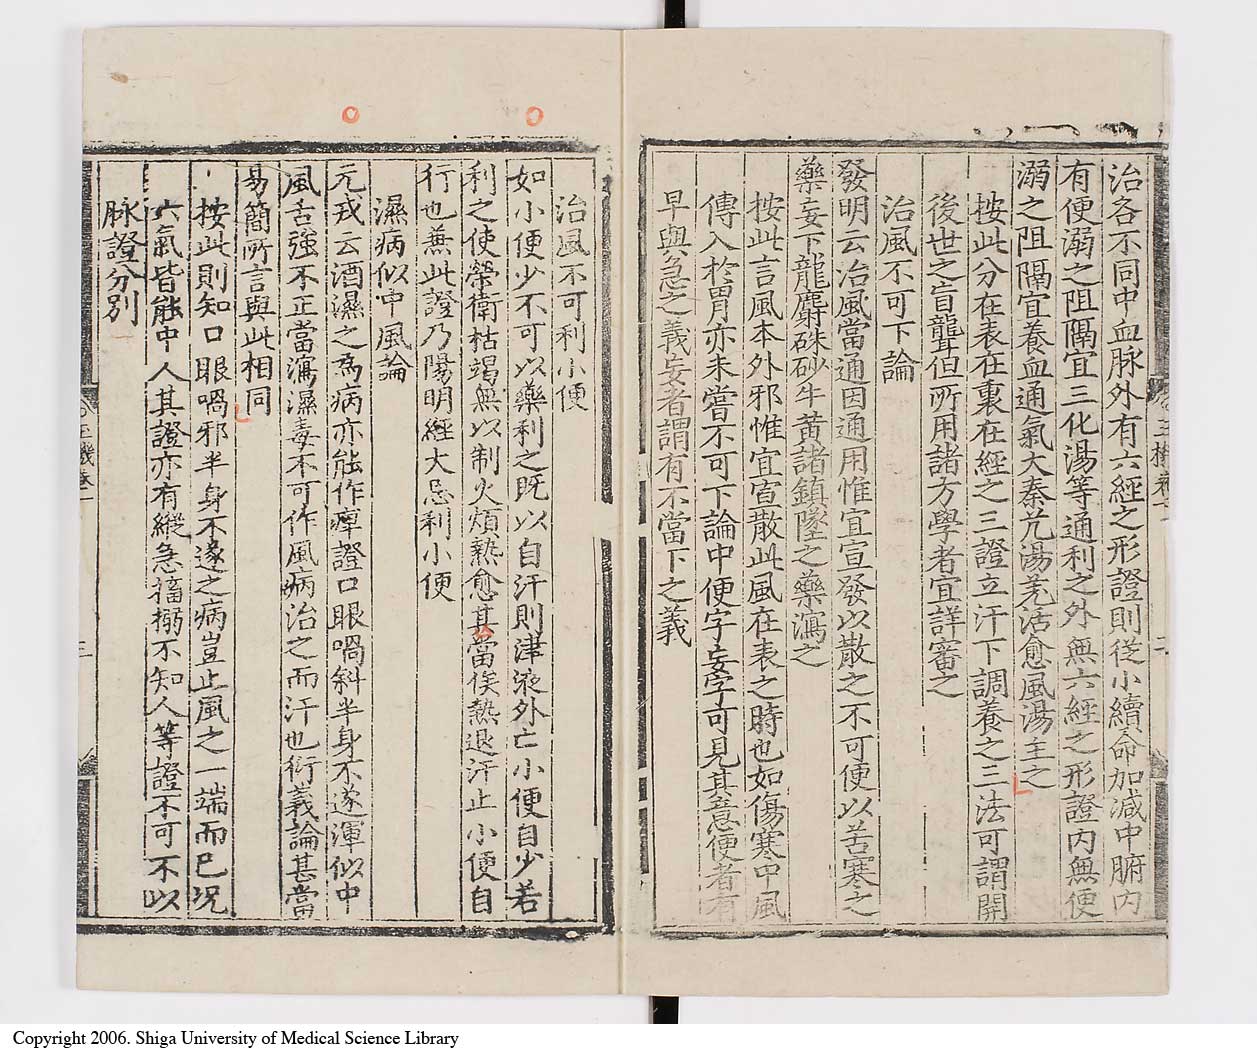 治各不同中血脉外有六經之形證則從小續命加减中腑内
有便溺之阻隔宜三化湯等通利之外無六經之形證内無便
溺之阻隔宜養血通氣大秦艽湯羌活愈風湯主之
按此分在表在裏在經之三證立汗下調養之三法可謂開
後世之盲聾但所用諸方學者宜詳審之
治風不可下論
發明云治風當通因通用惟宜宣發以散之不可便以苦寒之
藥妄下龍麝硃砂牛黄諸鎮墜之藥瀉之
按此言風本外邪惟宜宣散此風在表之時也如傷寒中風
傳入於胃亦未嘗不可下論中便字妄字可見其意便者有
早與急之義妄者謂有不當下之義
治風不可利小便
如小便少不可以藥利之既以自汗則津液外亡小便自少若
利之使榮衛枯竭無以制火煩熱愈甚當俟熱退汗止小便自
行也兼此證乃陽明經大忌利小便
濕病似中風論
元戎云酒濕之爲病亦能作痺證口眼喎斜半身不遂渾似中
風舌強不正當瀉濕毒不可作風病治之而汗也衍義論甚當
易簡所言與此相同
按此則知口眼喎邪半身不遂之病豈止風之一端而已况
六氣皆能中人其證亦有縱急搐搦不知人等證不可不以
脉證分別
三
Copyright 2006. Shiga University of Medical Science Library